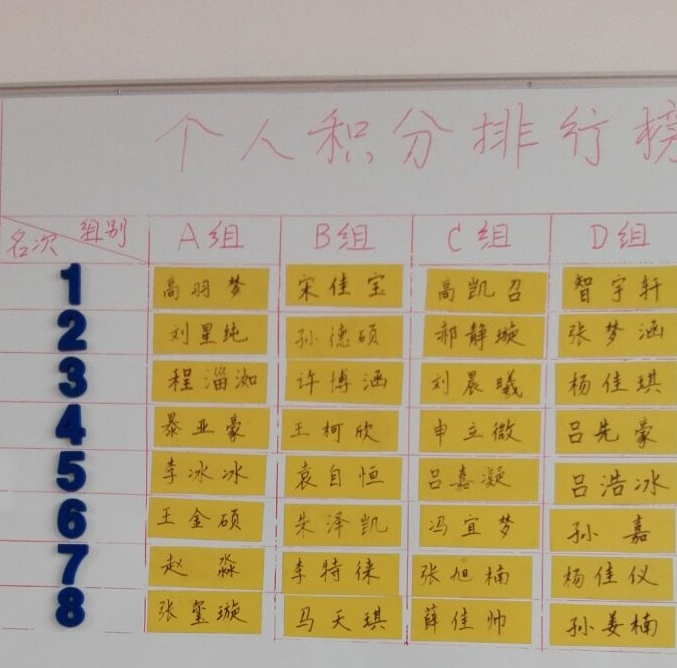 个人积分排行榜
名次 组别 A组 B组 C组 D组
1 高羽梦 宋佳宝 高凯召 智宇轩
2 刘星纯 孙德硕 郝静璇 张梦涵
3 程淄洳 许博涵 刘晨曦 杨佳琪
4 暴亚豪 王柯欣 申立微 吕先豪
5 李冰冰 袁自恒 吕嘉凝 吕浩冰
6 王金硕 朱泽凯 冯宜梦 孙嘉
7 赵淼 李特徕 张旭楠 杨佳仪
8 张玺璇 马天琪 薛佳帅 孙姜楠